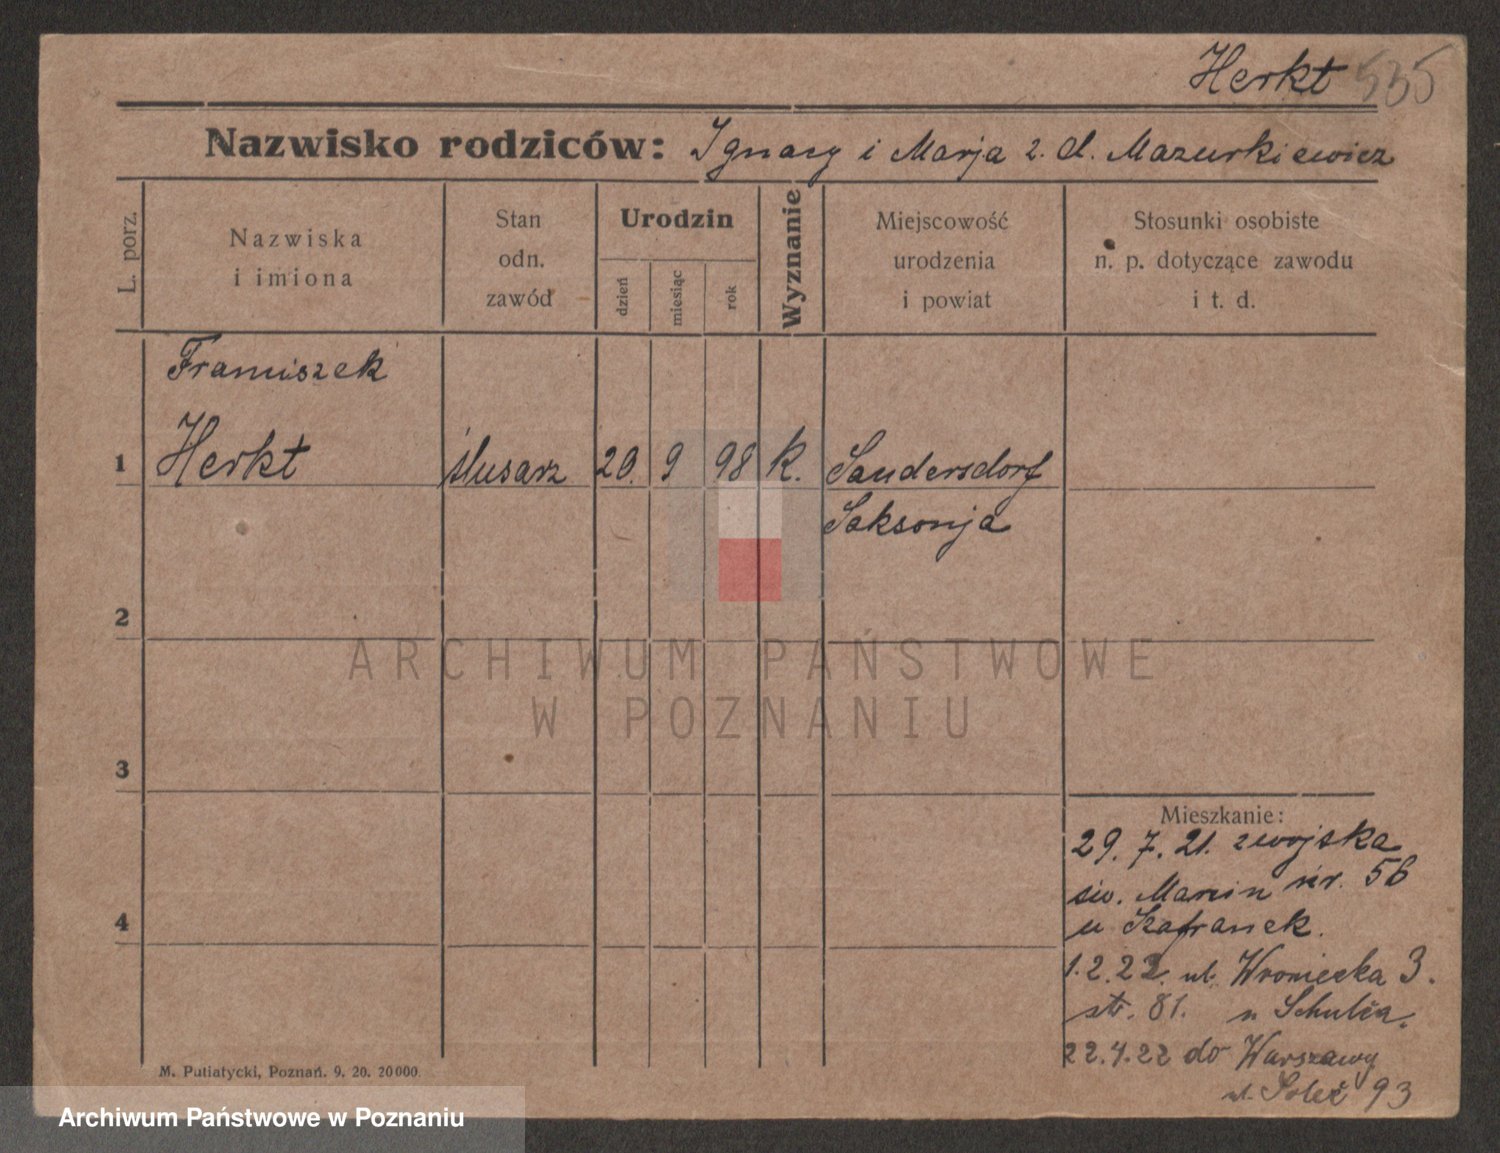 Herkt 535
Nazwisko rodziców: Ignacy i Marja z. d. Mazurkiewicz
L. porz.
Nazwiska
i imiona
Stan
odn.
zawód
Urodzin
dzień
miesiąc
rok
Wyznanie
Miejscowość
urodzenia
i powiat
Stosunki osobiste
n. p. dotyczące zawodu
i t. d.
Franciszek
1 Herkt ślusarz 20. 9 98 k. Sandersdorf
Saksonja
2
ARCHIWUM PAŃSTWOWE
W POZNANIU
3
Mieszkanie:
29. 7. 21. z wojska
św. Marcin nr. 56
u Szafranek.
4
1.2.22. ul. Wroniecka 3.
str. 81. u Schulza.
22.4.22 do Warszawy
ul. Solec 93
M. Putiatycki, Poznań. 9. 20. 20000.
Archiwum Państwowe w Poznaniu